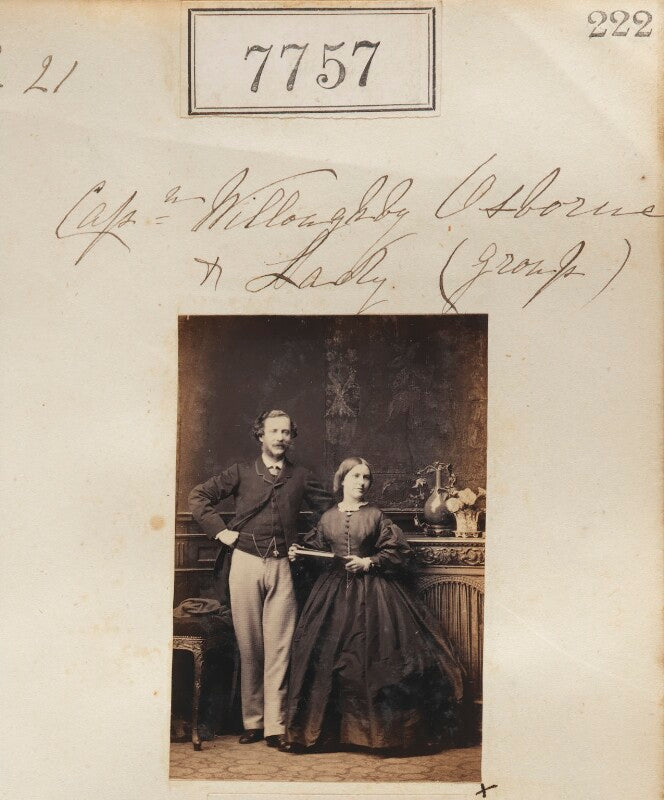 222
7757
21
Capn Willoughby Osborne
& Lady (Group)